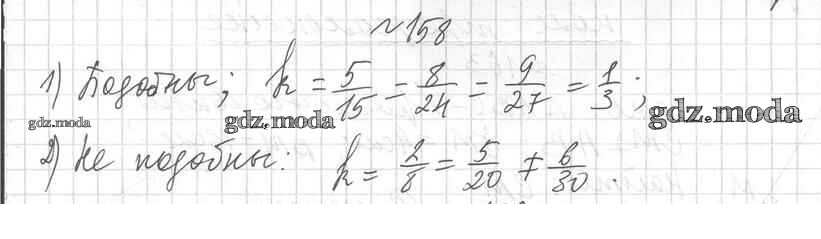 №158
1) Подобны; k = 5/15 = 8/24 = 9/27 = 1/3;
gdz.moda gdz.moda gdz.moda
2) Не подобны: k = 2/8 = 5/20 ≠ 6/30.